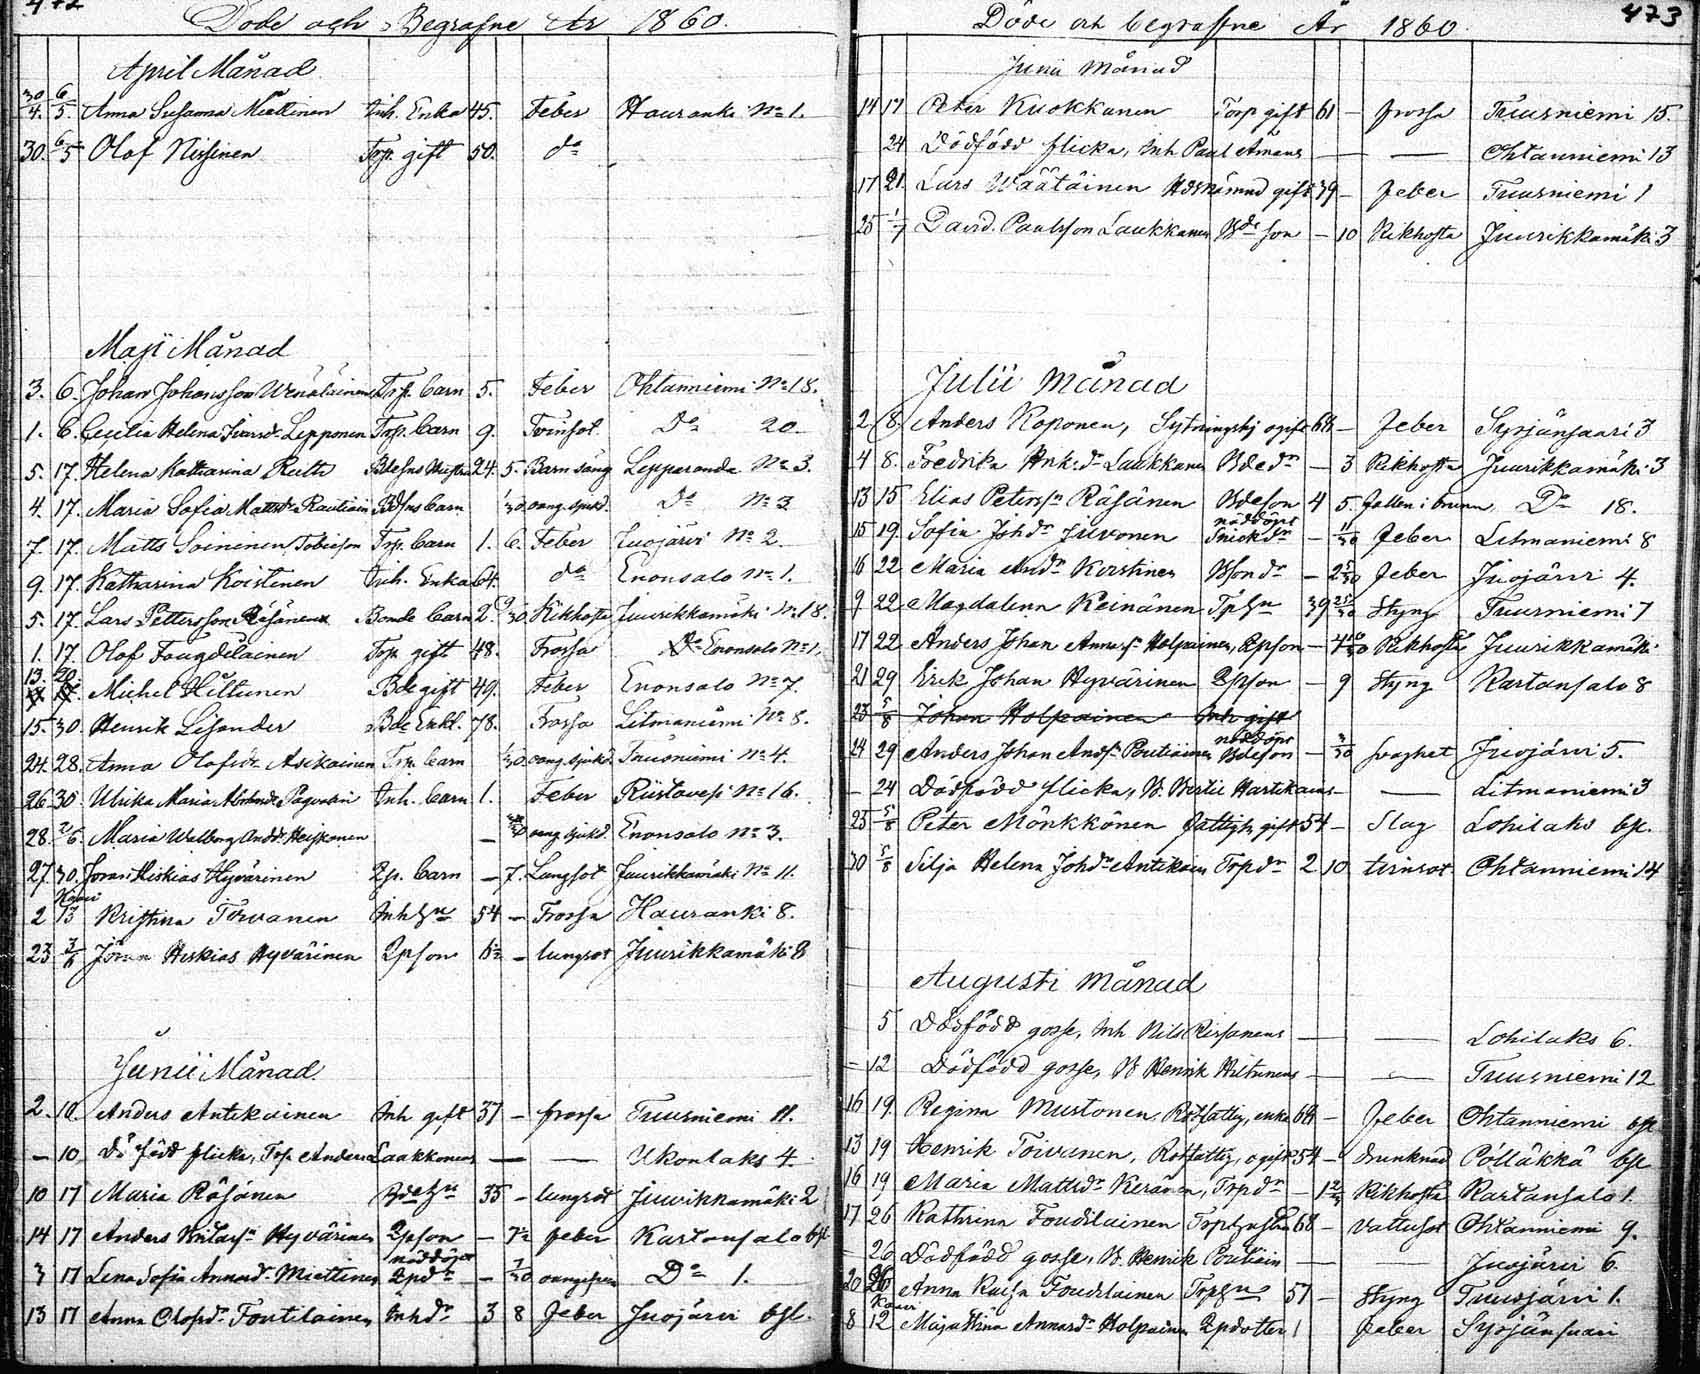 472
Döde och Begrafne År 1860.
April Månad
30/4. 6/5. Anna Susanna Miettinen Inh. Enka 45. Feber Hauranki No 1.
30. 6/5 Olof Nissinen Torp. gift 50. do
Maji Månad
3. 6. Johan Johansson Wenäläinen Torp. barn 5. Feber Ohtanniemi No 18.
1. 6. Cecilia Helena Ivarsdr Lepponen Torp. barn 9. Tvinsot. Do 20.
5. 17. Helena Katharina Rutte Bdesns 24. 5. Barnsäng Lepperanda No 3.
4. 17. Maria Sofia Mattsdr Rautiain Bdsns barn 1/30 oang. sjukd. Do No 3
7. 17. Matts Soininen Tobiesson Torp. barn 1. 6. Feber Juojärvi No 2.
9. 17. Katharina Koistinen Inh. Enka 64. do Enonsalo No 1.
5. 17. Lars Pettersson Räsänen Bonde barn 2. 9/30 Kikhosta Juurikkamäki No 18.
1. 17. Olof Fougdelainen Torp. gift 48. Frossa Enonsalo No 1.
13. 20. Michel Hiltunen Bde gift 49. Feber Enonsalo No 7.
15. 30. Henrik Lisander Bde Enkl. 78. Frossa Litmaniemi No 8.
24. 28. Anna Olofsdr Asikainen Torp. barn 1/30 oang. sjukd. Tuusniemi No 4.
26. 30. Ulrika Maria Inh. barn 1. Feber Riistavesi No 16.
28. 2/6 Maria Walborg Andd. Heiskanen — oang. sjukd. Enonsalo No 3.
27. 30. Jöran Hiskias Hyvärinen Lp. barn — 7. Lungsot Juurikkamäki No 11.
Kaavi
2 13 Kristina Toivanen Inh hu 54 — Frossa Hauranki 8.
23 3/6 Jöran Hiskias Hyvärinen Lpson 6½ — lungsot Juurikkamäki 8
Junii Månad.
2. 10. Anders Antikainen Inh gift 37 — frossa Tuusniemi 11.
— 10 Dödfödd flicka, Torp. Anders Laakkonens — — Ukonlaks 4.
10 17 Maria Räsänen Bdehu 35 — lungsot Juurikkamäki 2
14 17 Anders Hyvärinen Lpson — 7½ feber Kartansalo bfl
nöddöpt
3 17 Lena Sofia Annasd. Miettinen Lpdr — 7/30 Do 1.
13 17 Anna Olofsdr Foutilainen Inhdr 3 8 feber Juojärvi bfl.
473
Döde och begraffne År 1860.
Junii Månad
14 17 Peter Kuokkanen Torp gift 61 — frossa Tuusniemi 15.
24 Dödfödd flicka, Inh Paul Åmans — — Ohtanniemi 13
17 21. Lars Wäätäinen gift 79 — feber Tuusniemi 1
25 1/7 David Paulsson Laukkanen Bde son — 10 Kikhosta Juurikkamäki 3
Julii Månad
2 8 Anders Koponen, ogift 68 — feber Syrjänsaari 3
4 8. Fredrika Hnk:dr Laukkanen Bdedr — 3 Kikhosta Juurikkamäki 3
13 15 Elias Peterssn Räsänen Bdeson 4 5. fallen i brunn Do 18.
nöddöpt
15 19. Sofia Johdr Juvonen Snickdr — 11/30 feber Litmaniemi 8
16 22 Maria Anddr Kirstinen — feber Juojärvi 4.
9 22 Magdalena Reinänen Tphu 39 25/30 Styng Tuusniemi 7
17 22 Anders Johan Annass. Holpainen, Lpson — Kikhosta Juurikkamäki
21 29 Erik Johan Hyvärinen Lpson — 9 Styng Kartansalo 8
23 5/8 Johan Holpainen Inh gift
nöddöpt
24 29 Anders Johan Andss. Poutiainen Bdeson — 3/30 svaghet Juojärvi 5.
— 24 Dödfödd flicka, B. Bertil Hartikains — — Litmaniemi 3
23 5/8 Peter Mönkkönen fattigh gift 54 — Slag Lohilaks bfl.
30 5/8 Silja Helena Johdr Antikain Torpdr 2 10 tvinsot Ohtanniemi 14
Augusti Månad
5 Dödfödd gosse, Inh Nils Kirsanens — — Lohilaks 6.
— 12 Dödfödd gosse, B Henrik Hiltunens — — Tuusniemi 12
16 19. Regina Mustonen, Rotfattig, enka 68 — feber Ohtanniemi bfl
13 19 Henrik Toivanen, Rotfattig, ogift 54 — drunknad Pölläkkä bfl
16 19 Maria Mattsdr Keränen, Torpdr — Kikhosta Kartansalo 1.
17 26 Kathrina Foudilainen 68 — Vattusot Ohtanniemi 9.
— 26 Dödfödd gosse, B. Henrik Poutiain — — Juojärvi 6.
20 26 Anna Kaisa Foudilainen Torphu 57 — Styng Tuusjärvi 1.
Kaavi
8 12 Maja Stina Annasdr Holpainen Lpdotter 1 Feber Syrjänsaari